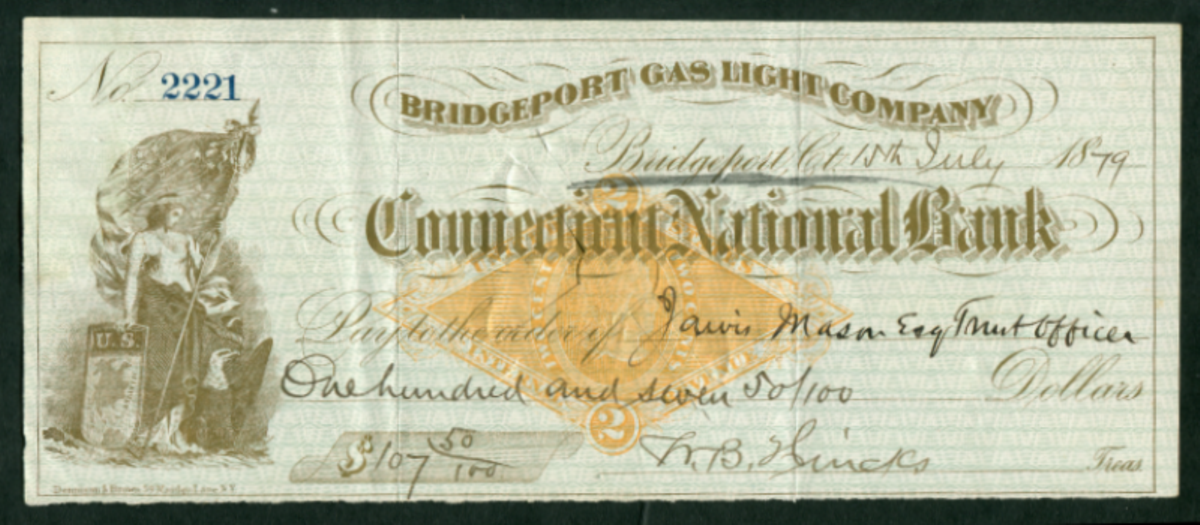 No. 2221
BRIDGEPORT GAS LIGHT COMPANY
Bridgeport, Ct. 15th July 1879
Connecticut National Bank
Pay to the order of Jarvis Mason Esq Trust Officer
One hundred and seven 50/100 Dollars
U.S.
2
2
$107 50/100
W. B. Hincks Treas